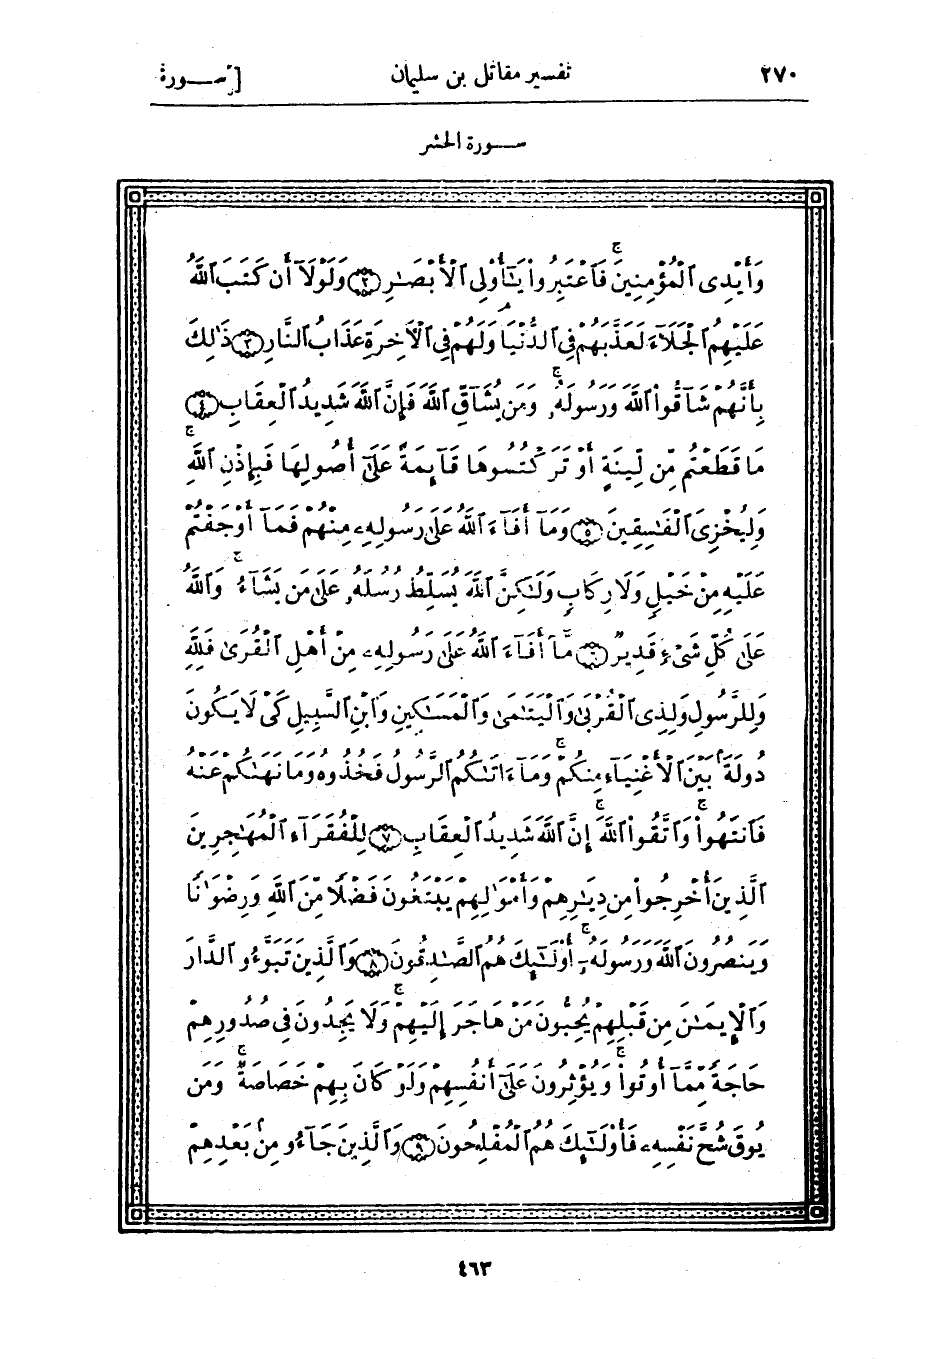 ٢٧٠ تفسير مقاتل بن سليمان [ سورة
سورة الحشر
وَأَيْدِى ٱلْمُؤْمِنِينَ فَٱعْتَبِرُوا۟ يَـٰٓأُو۟لِى ٱلْأَبْصَـٰرِ ﴿٢﴾ وَلَوْلَآ أَن كَتَبَ ٱللَّهُ
عَلَيْهِمُ ٱلْجَلَآءَ لَعَذَّبَهُمْ فِى ٱلدُّنْيَا وَلَهُمْ فِى ٱلْآخِرَةِ عَذَابُ ٱلنَّارِ ﴿٣﴾ ذَٰلِكَ
بِأَنَّهُمْ شَآقُّوا۟ ٱللَّهَ وَرَسُولَهُۥ وَمَن يُشَآقِّ ٱللَّهَ فَإِنَّ ٱللَّهَ شَدِيدُ ٱلْعِقَابِ ﴿٤﴾
مَا قَطَعْتُم مِّن لِّينَةٍ أَوْ تَرَكْتُمُوهَا قَآئِمَةً عَلَىٰٓ أُصُولِهَا فَبِإِذْنِ ٱللَّهِ
وَلِيُخْزِىَ ٱلْفَـٰسِقِينَ ﴿٥﴾ وَمَآ أَفَآءَ ٱللَّهُ عَلَىٰ رَسُولِهِۦ مِنْهُمْ فَمَآ أَوْجَفْتُمْ
عَلَيْهِ مِنْ خَيْلٍ وَلَا رِكَابٍ وَلَـٰكِنَّ ٱللَّهَ يُسَلِّطُ رُسُلَهُۥ عَلَىٰ مَن يَشَآءُ وَٱللَّهُ
عَلَىٰ كُلِّ شَىْءٍ قَدِيرٌ ﴿٦﴾ مَّآ أَفَآءَ ٱللَّهُ عَلَىٰ رَسُولِهِۦ مِنْ أَهْلِ ٱلْقُرَىٰ فَلِلَّهِ
وَلِلرَّسُولِ وَلِذِى ٱلْقُرْبَىٰ وَٱلْيَتَـٰمَىٰ وَٱلْمَسَـٰكِينِ وَٱبْنِ ٱلسَّبِيلِ كَىْ لَا يَكُونَ
دُولَةًۢ بَيْنَ ٱلْأَغْنِيَآءِ مِنكُمْ وَمَآ ءَاتَىٰكُمُ ٱلرَّسُولُ فَخُذُوهُ وَمَا نَهَىٰكُمْ عَنْهُ
فَٱنتَهُوا۟ وَٱتَّقُوا۟ ٱللَّهَ إِنَّ ٱللَّهَ شَدِيدُ ٱلْعِقَابِ ﴿٧﴾ لِلْفُقَرَآءِ ٱلْمُهَـٰجِرِينَ
ٱلَّذِينَ أُخْرِجُوا۟ مِن دِيَـٰرِهِمْ وَأَمْوَٰلِهِمْ يَبْتَغُونَ فَضْلًا مِّنَ ٱللَّهِ وَرِضْوَٰنًا
وَيَنصُرُونَ ٱللَّهَ وَرَسُولَهُۥٓ أُو۟لَـٰٓئِكَ هُمُ ٱلصَّـٰدِقُونَ ﴿٨﴾ وَٱلَّذِينَ تَبَوَّءُو ٱلدَّارَ
وَٱلْإِيمَـٰنَ مِن قَبْلِهِمْ يُحِبُّونَ مَنْ هَاجَرَ إِلَيْهِمْ وَلَا يَجِدُونَ فِى صُدُورِهِمْ
حَاجَةً مِّمَّآ أُوتُوا۟ وَيُؤْثِرُونَ عَلَىٰٓ أَنفُسِهِمْ وَلَوْ كَانَ بِهِمْ خَصَاصَةٌ وَمَن
يُوقَ شُحَّ نَفْسِهِۦ فَأُو۟لَـٰٓئِكَ هُمُ ٱلْمُفْلِحُونَ ﴿٩﴾ وَٱلَّذِينَ جَآءُو مِنۢ بَعْدِهِمْ
٤٦٣